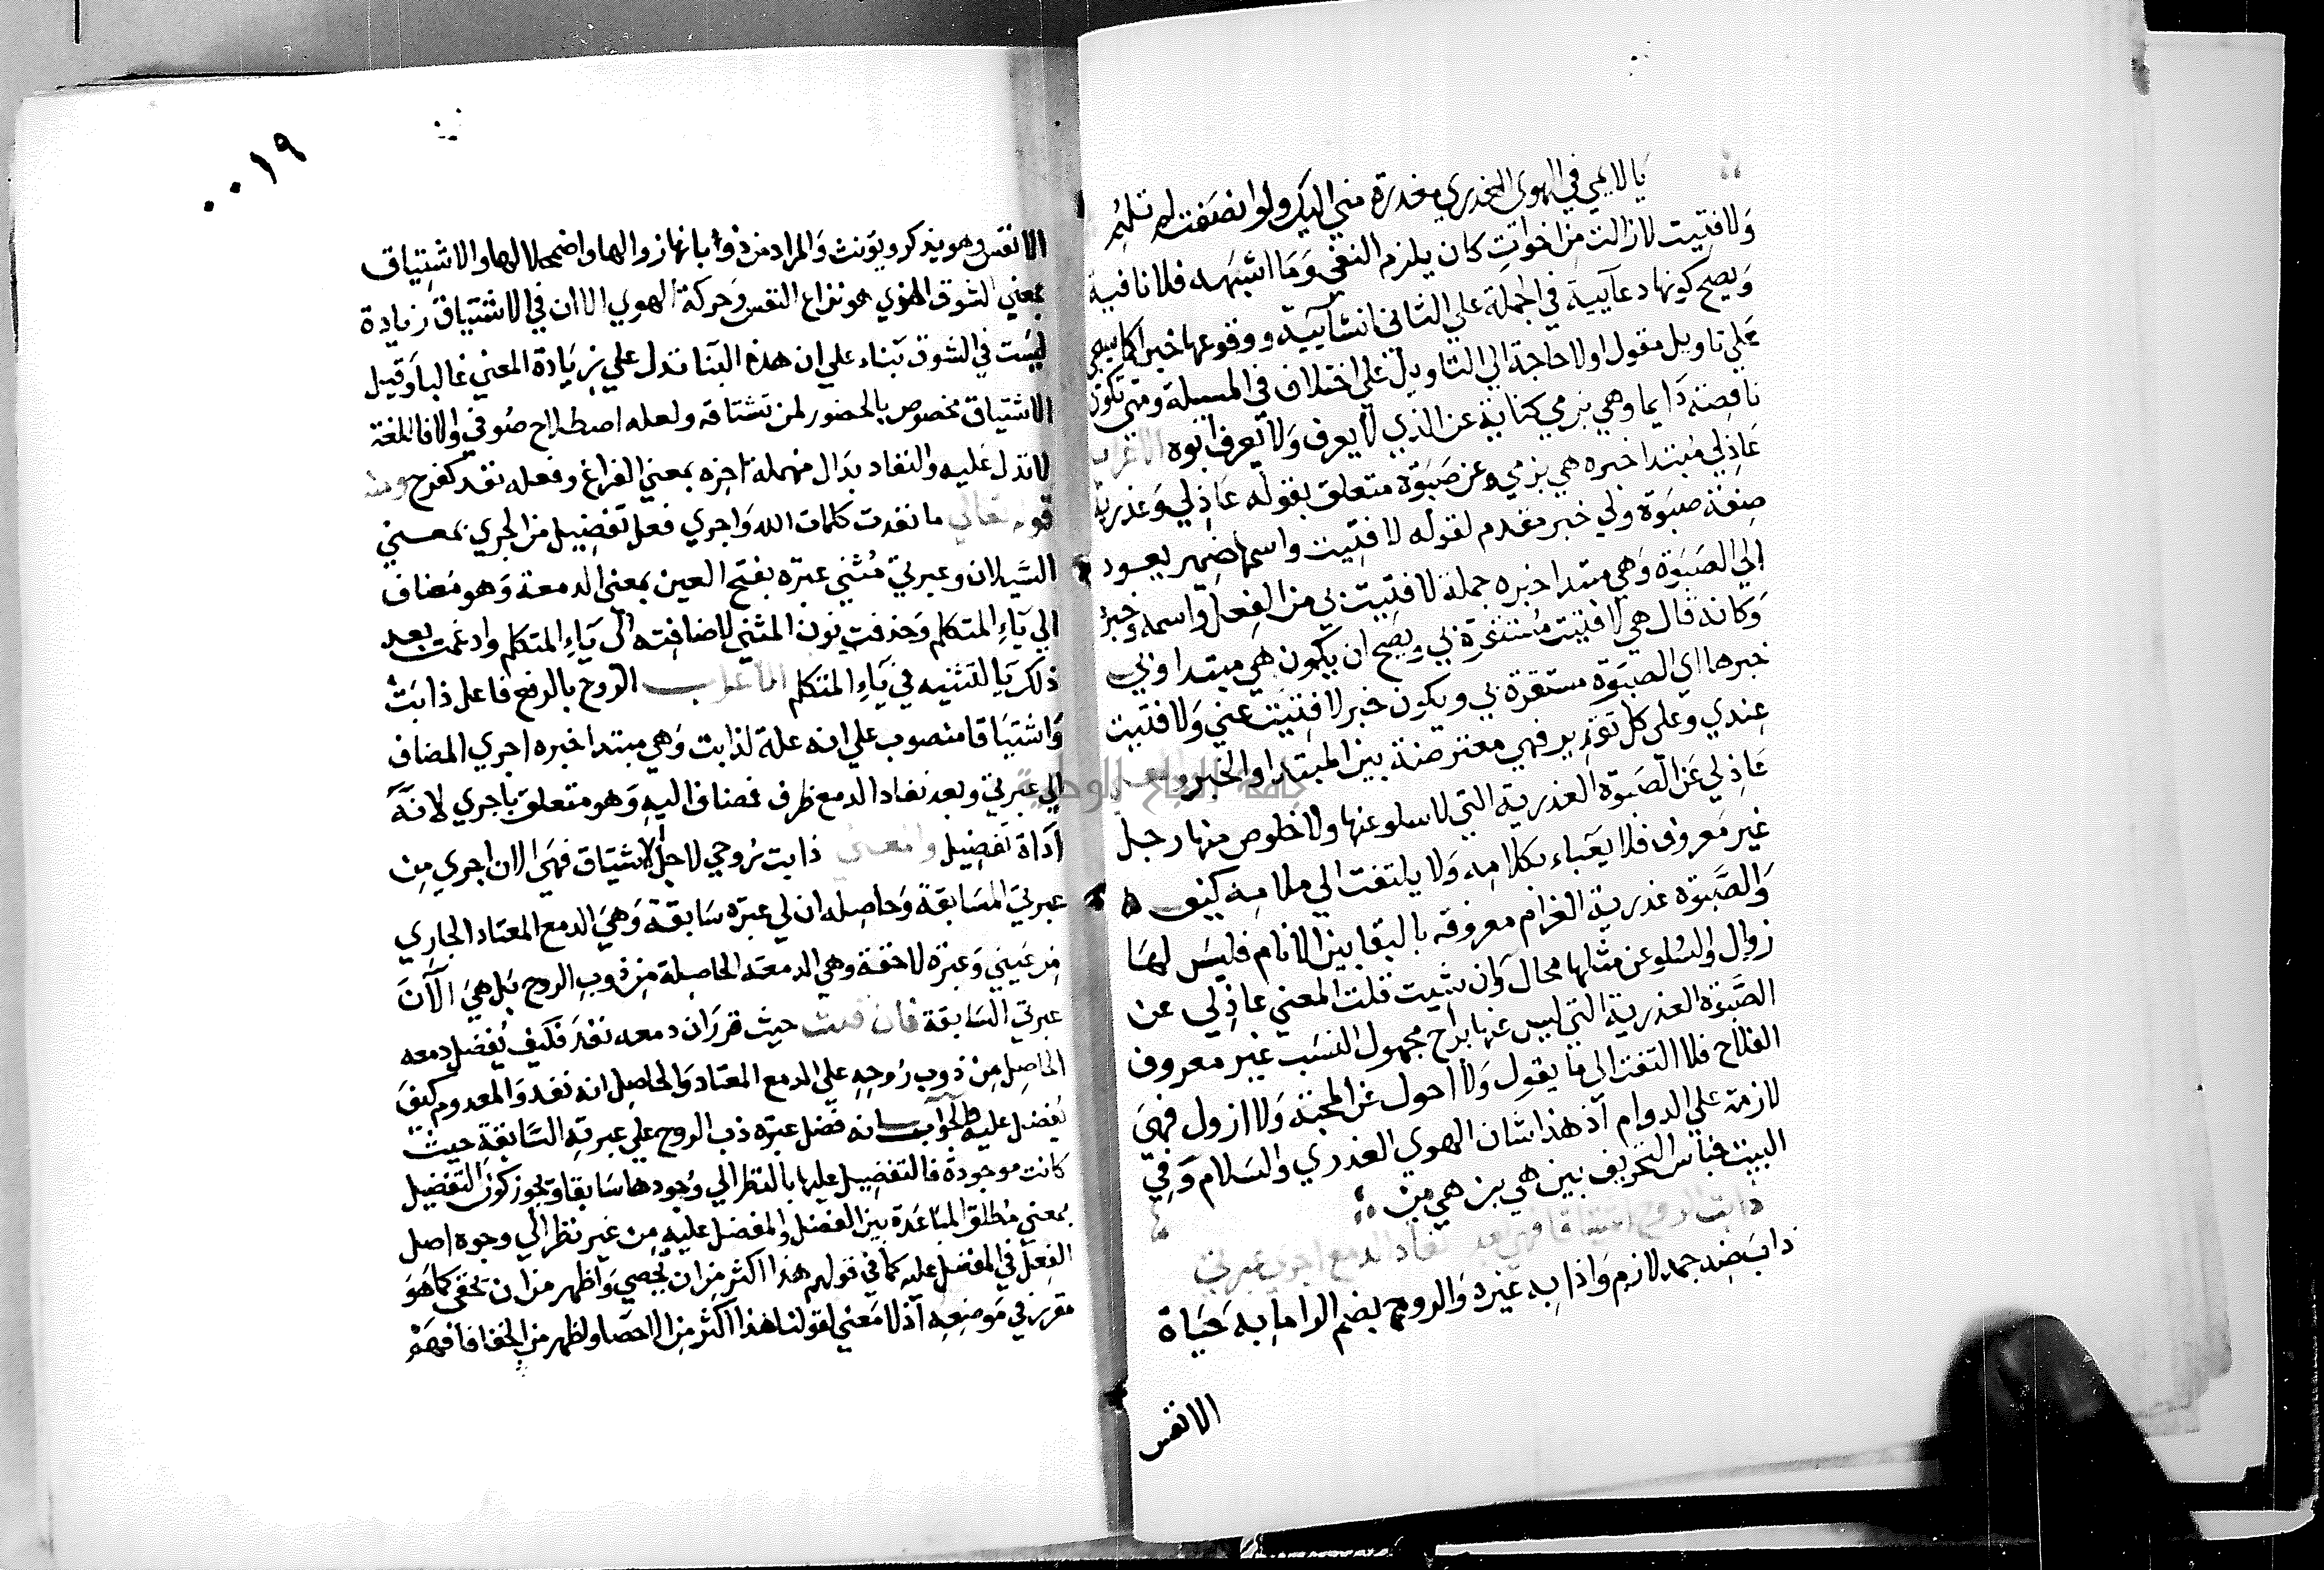 يا لايمي في الهوى العذري معذرة مني اليك ولو انصفت لم تلم
ولا فتيت لا زالت من اخوات كان يلزم النفي وما اشبهه فلا نافية
ويصح كونها دعآيية في الجملة علي الثاني انشآيية ووقوعها خبرا كما سيجي
علي تاويل مقول او لا حاجة الي التاويل علي اختلاف في المسيلة ومتي تكون
ناقصة دايما وهي بن مي كناية عن الذي لا يعرف ولا يعرف ابوه الاعراب
عاذلي مبتدا خبره هي بن مي وعن صبوة متعلق بقوله عاذلي وعذرية
صفة صبوة ولي خبر مقدم لقوله لا فتيت واسمها ضمير يعود
الي الصبوة وهي مبتدا خبره جملة لا فتيت بي من الفعل واسمه وخبره
وكانه قال هي لا فتيت مستقرة بي ويصح ان يكون هي مبتدا وبي
خبرها اي الصبوة مستقرة بي ويكون خبر لا فتيت عني ولا فتيت
عندي وعلي كل تقدير فهي معترضة بين المبتدا والخبر
عاذلي عن الصبوة العذرية التي لا سلو عنها ولا خلوص منها رجل
غير معروف فلا يعباء بكلامه ولا يلتفت الي ملامه كيف ه
والصبوة عذرية الغرام معروفه بالبقا بين الانام فليس لها
زوال والسلو عن مثلها محال وان شيت قلت المعني عاذلي عن
الصبوة العذرية التي ليس عنها براح مجهول النسب غير معروف
الفلاح فلا التفت الي ما يقول ولا احول عن المحبة ولا ازول فهي
لازمة علي الدوام اذ هذا شان الهوي العذري والسلام وفي
البيت جناس التحريف بين هي بن هي من
ذابت الروح اشتياقا فهي بعد نفاد الدمع اجري عبرتي
ذاب ضد جمد لازم واذابه غيره والروح بضم الرا ما به حياة
الانفس
٠٠١٩
الانفس وهو يذكر ويونث والمراد من ذوبانها زوالها واضمحلالها والاشتياق
بمعني الشوق الذي هو نزاع النفس وحركة الهوي الا ان في الاشتياق زيادة
ليست في الشوق بناء علي ان هذه البنا تدل علي زيادة المعني غالبا وقيل
الاشتياق مخصوص بالحضور لمن تشتاقه ولعله اصطلاح صوفي والا فاللغة
لا تدل عليه والنفاد بدال مهملة اخره بمعني الفراغ وفعله نفد كفرح ومنه
قوله تعالي ما نفدت كلمات الله واجري فعل تفضيل من الجري بمعني
السيلان وعبرتي مثني عبره بفتح العين بمعني الدمعة وهو مضاف
الي ياء المتكلم وحذفت نون المثني لاضافته الي ياء المتكلم وادغمت بعد
ذلك يا التثنيه في ياء المتكلم الاعراب الروح بالرفع فاعل ذابت
واشتياقا منصوب علي انه علة لذابت وهي مبتدا خبره اجري المضاف
الي عبرتي وبعد نفاد الدمع ظرف مضاف اليه وهو متعلق باجري لانه
اداة تفضيل والمعني ذابت روحي لاجل الاشتياق فهي الان اجري من
عبرتي السابقة وحاصله ان لي عبره سابقة وهي الدمع المعتاد الجاري
من عيني وعبره لاحقة وهي الدمعة الحاصلة من ذوب الروح بل هي الآن
عبرتي السابقة فان قلت حيث قرر ان دمعه نفد فكيف يفضل دمعه
الحاصل من ذوب روحه علي الدمع المعتاد والحاصل انه نفد والمعدوم كيف
يفضل عليه فالجواب انه فضل عبره ذب الروح علي عبرته السابقة حيث
كانت موجودة فالتفضيل عليها بالنظر الي وجودها سابقا ويجوز كون التفضيل
بمعني مطلق المباعدة بين الفضل والمفضل عليه من غير نظر الي وجوه اصل
الفعل في المفضل عليه كما في قولهم هذا اكثر من ان يحصي واظهر من ان تخفي كما هو
مقرر في موضعه اذ لا معني لقولنا هذا اكثر من الاحصا ولظهر من الخفا فافهم